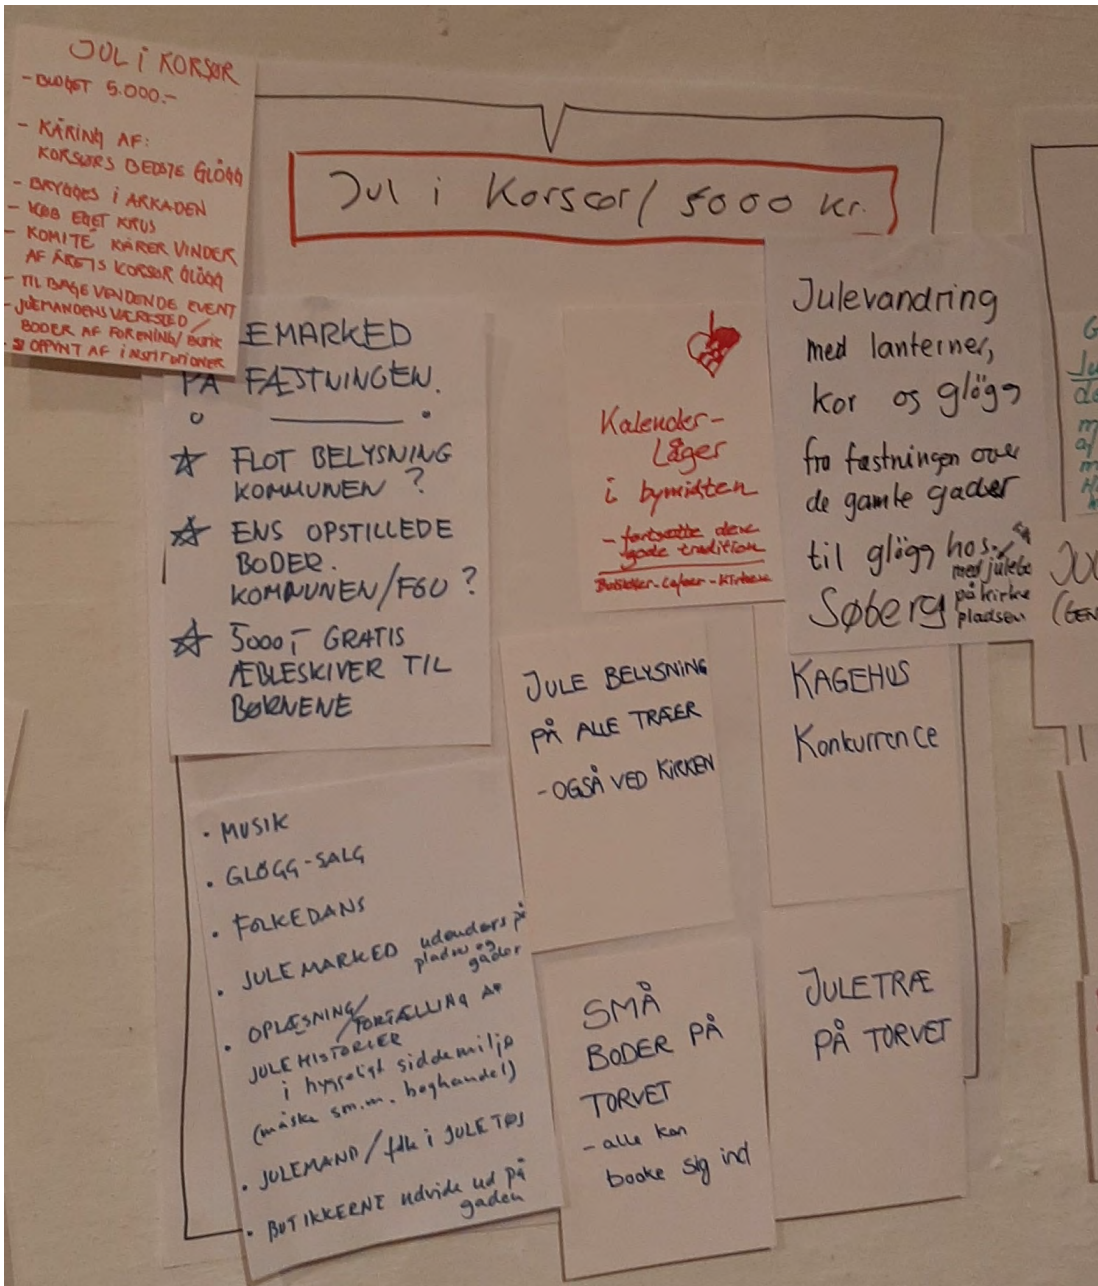 JUL I KORSØR
- BUDGET 5.000.-
- KÅRING AF:
KORSØRS BEDSTE GLÖGG
- BRYGGES I ARKADEN
- KØB EGET KRUS
- KOMITÉ KÅRER VINDER
AF ÅRETS KORSØR GLÖGG
- TILBAGEVENDENDE EVENT
- JULEMANDENS VÆRKSTED/
BODER AF FORENING/BUTIK
OPPYNT AF INSTITUTIONER
Jul i Korsør/ 5000 kr.
EMARKED
PÅ FÆSTNINGEN.
☆ FLOT BELYSNING
KOMMUNEN ?
☆ ENS OPSTILLEDE
BODER.
KOMMUNEN/FGU ?
☆ 5000,- GRATIS
ÆBLESKIVER TIL
BØRNENE
Kalender-
Låger
i bymidten
- fortsætte denne
gode tradition
Butikker-Cafeer-Kirken
Julevandring
med lanterner,
kor og glögg
fra fæstningen over
de gamle gader
til glögg hos
Søberg
med julebe
på kirke
pladsen
JULE BELYSNING
PÅ ALLE TRÆER
- OGSÅ VED KIRKEN
KAGEHUS
Konkurrence
• MUSIK
• GLÖGG-SALG
• FOLKEDANS
• JULEMARKED udendørs på
pladser og
gader
• OPLÆSNING/
FORTÆLLING AF
JULEHISTORIER
i hyggeligt siddemiljø
(måske sm.m. boghandel)
• JULEMAND/folk i JULETØJ
• BUTIKKERNE udvide ud på
gaden
SMÅ
BODER PÅ
TORVET
- alle kan
booke sig ind
JULETRÆ
PÅ TORVET